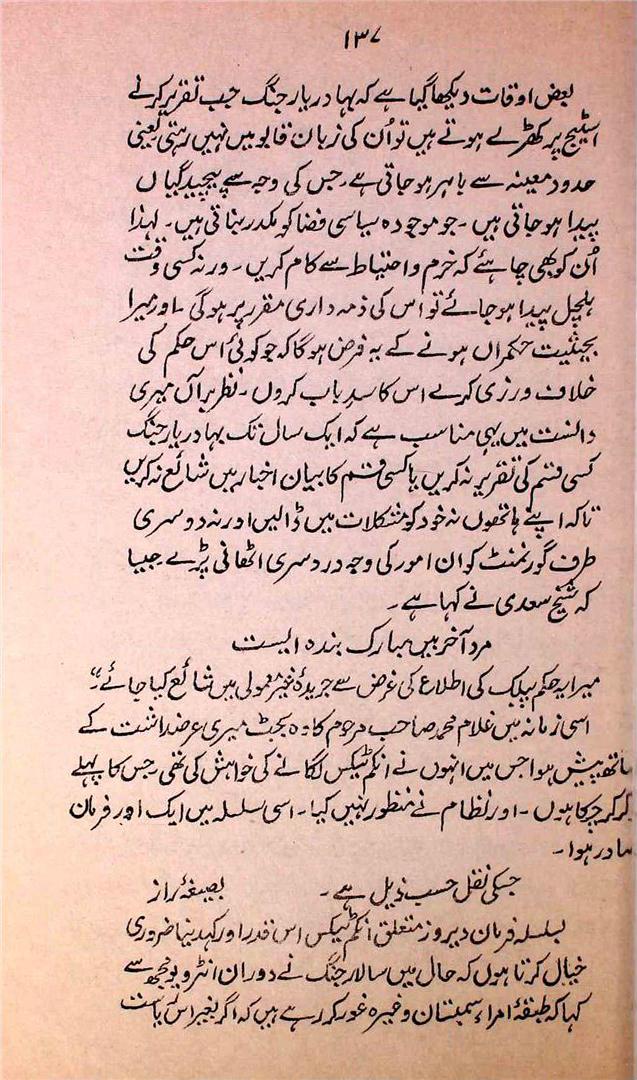 ۱۳۷
بعض اوقات دیکھا گیا ہے کہ بہادر یار جنگ جب تقریر کرنے
اسٹیج پر کھڑے ہوتے ہیں تو اُن کی زبان قابو میں نہیں رہتی یعنی
حدود معینہ سے باہر ہو جاتی ہے۔ جس کی وجہ سے پیچیدگیاں
پیدا ہو جاتی ہیں۔ جو موجودہ سیاسی فضا کو مکدر بناتی ہیں۔ لہذا
اُن کو بھی چاہئے کہ خرم و احتیاط سے کام کریں۔ ورنہ کسی وقت
ہلچل پیدا ہو جائے تو اس کی ذمہ داری مقرر پر ہوگی۔ اور میرا
بحیثیت حکمراں ہونے کے یہ فرض ہوگا کہ جو کوئی اس حکم کی
خلاف ورزی کرے اس کا سد باب کروں۔ نظر برآں میری
دانست میں یہی مناسب ہے کہ ایک سال تک بہادر یار جنگ
کسی قسم کی تقریر نہ کریں یا کسی قسم کا بیان اخبار میں شائع نہ کریں
تاکہ اپنے ہاتھوں نہ خود کو مشکلات میں ڈالیں اور نہ دوسری
طرف گورنمنٹ کو ان امور کی وجہ درد سری اٹھانی پڑے جیسا
کہ شیخ سعدی نے کہا ہے۔
مرد آخر بیں مبارک بندہ ایست
میرا یہ حکم پبلک کی اطلاع کی غرض سے جریدۂ غیر معمولی میں شائع کیا جائے۔"
اسی زمانہ میں غلام محمد صاحب مرحوم کا وہ بجٹ میری عرضداشت کے
ساتھ پیش ہوا جس میں انہوں نے انکم ٹیکس لگانے کی خواہش کی تھی۔ جس کا پہلے
ذکر کر چکا ہوں۔ اور نظام نے منظور نہیں کیا۔ اسی سلسلہ میں ایک اور فرمان
صادر ہوا۔
جسکی نقل حسب ذیل ہے۔ بصیغۂ راز
بسلسلہ فرمان دیروز متعلق انکم ٹیکس اس قدر اور کہدینا ضروری
خیال کرتا ہوں کہ حال میں سالار جنگ نے دوران انٹرویو مجھ سے
کہا کہ طبقۂ امراء سمستان وغیرہ غور کر رہے ہیں کہ اگر بغیر اس